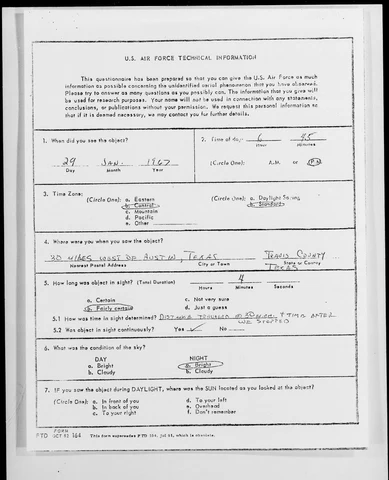 U.S. AIR FORCE TECHNICAL INFORMATION
This questionnaire has been prepared so that you can give the U.S. Air Force as much
information as possible concerning the unidentified aerial phenomenon that you have observed.
Please try to answer as many questions as you possibly can. The information that you give will
be used for research purposes. Your name will not be used in connection with any statements,
conclusions, or publications without your permission. We request this personal information so
that if it is deemed necessary, we may contact you for further details.
1. When did you see the object?
29 Jan. 1967
Day Month Year
2. Time of day: 6 45
Hour Minutes
(Circle One): A.M. or P.M.
3. Time Zone:
(Circle One): a. Eastern
b. Central
c. Mountain
d. Pacific
e. Other
(Circle One): a. Daylight Saving
b. Standard
4. Where were you when you saw the object?
30 MILES WEST OF AUSTIN, TEXAS TRAVIS COUNTY
Nearest Postal Address City or Town State or County
TEXAS
5. How long was object in sight? (Total Duration) 4
Hours Minutes Seconds
a. Certain c. Not very sure
b. Fairly certain d. Just a guess
5.1 How was time in sight determined? DISTANCE TRAVELED & TIME AFTER
WE STOPPED
5.2 Was object in sight continuously? Yes ✓ No
6. What was the condition of the sky?
DAY NIGHT
a. Bright a. Bright
b. Cloudy b. Cloudy
7. IF you saw the object during DAYLIGHT, where was the SUN located as you looked at the object?
(Circle One): a. In front of you d. To your left
b. In back of you e. Overhead
c. To your right f. Don't remember
FORM
FTD OCT 62 164 This form supersedes FTD 164, Jul 61, which is obsolete.